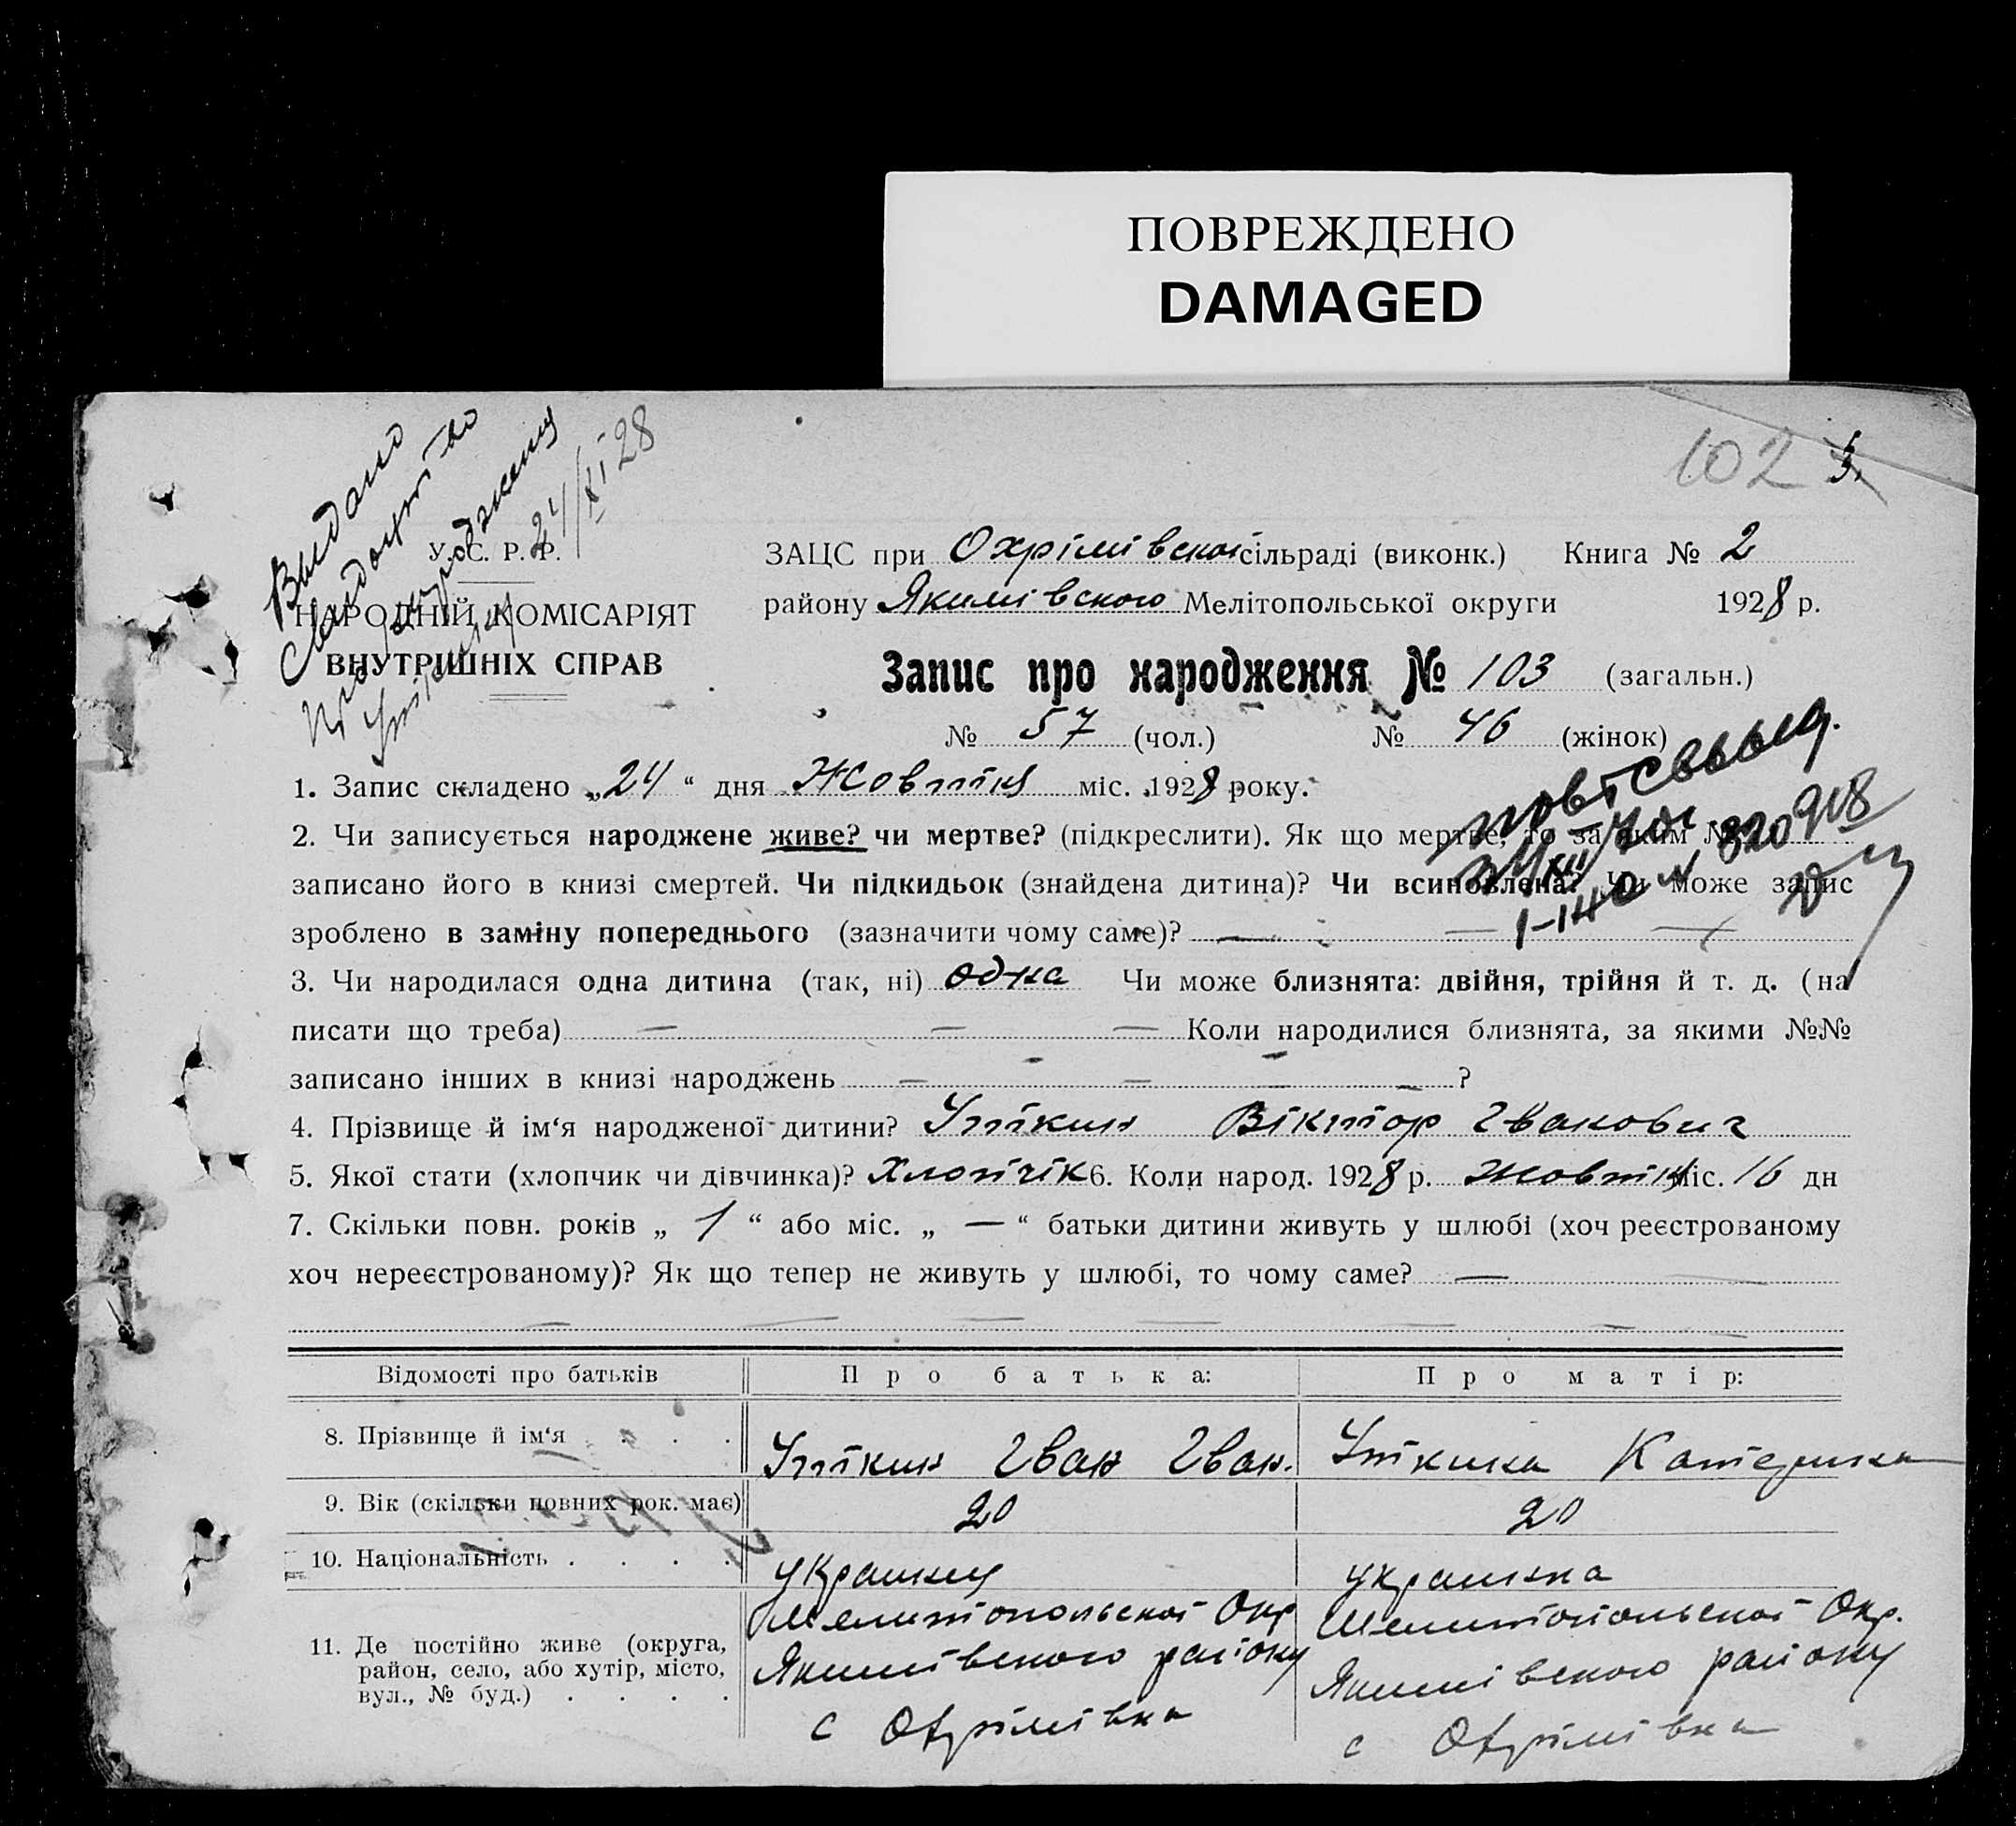 ПОВРЕЖДЕНО
DAMAGED
102
Видано
Свидоцтво
про народження
Уткину
24/XI 28
У. С. Р. Р.
НАРОДНІЙ КОМІСАРІЯТ
ВНУТРІШНІХ СПРАВ
ЗАЦС при Охрімівскої сільраді (виконк.) Книга № 2
району Якимівского Мелітопольської округи 1928 р.
Запис про народження № 103 (загальн.)
№ 57 (чол.) № 46 (жінок)
1. Запис складено „24“ дня Жовтня міс. 1928 року.
2. Чи записується народжене живе? чи мертве? (підкреслити). Як що мертве, то за яким №
записано його в книзі смертей. Чи підкидьок (знайдена дитина)? Чи всиновлена? Чи може запис
зроблено в заміну попереднього (зазначити чому саме)? —
3. Чи народилася одна дитина (так, ні) одна Чи може близнята: двійня, трійня й т. д. (на
писати що треба) — — — Коли народилися близнята, за якими №№
записано інших в книзі народжень — — — — ?
4. Прізвище й ім‘я народженої дитини? Уткин Віктор Іванович
5. Якої стати (хлопчик чи дівчинка)? Хлопчік 6. Коли народ. 1928 р. жовтня міс. 16 дн
7. Скільки повн. років „ 1 “ або міс. „ — “ батьки дитини живуть у шлюбі (хоч реєстрованому
хоч нереєстрованому)? Як що тепер не живуть у шлюбі, то чому саме? —
Відомості про батьків Про батька: Про матір:
8. Прізвище й ім‘я . . . . Уткин Іван Іван. Уткина Катерина
9. Вік (скільки повних рок. має) 20 20
10. Національність . . . . украинец украинка
11. Де постійно живе (округа, район, село, або хутір, місто, вул., № буд.) . . . .
Мелитопольскої Окр
Якимівского району
с Охрімівка
Мелитопольскої Окр.
Якимівского району
с Охрімівка